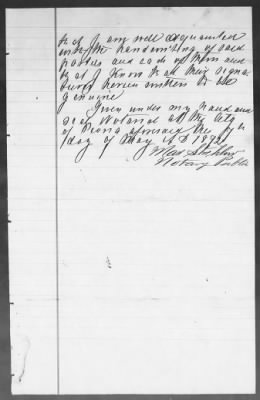 that I am well acquainted
with the handwriting of said
parties and each of them and
that I know that their signa
tures herein written to be
genuine
Given under my hand and
seal Notarial at the City
of Peoria aforesaid the
day of May A D 1892
Notary Public